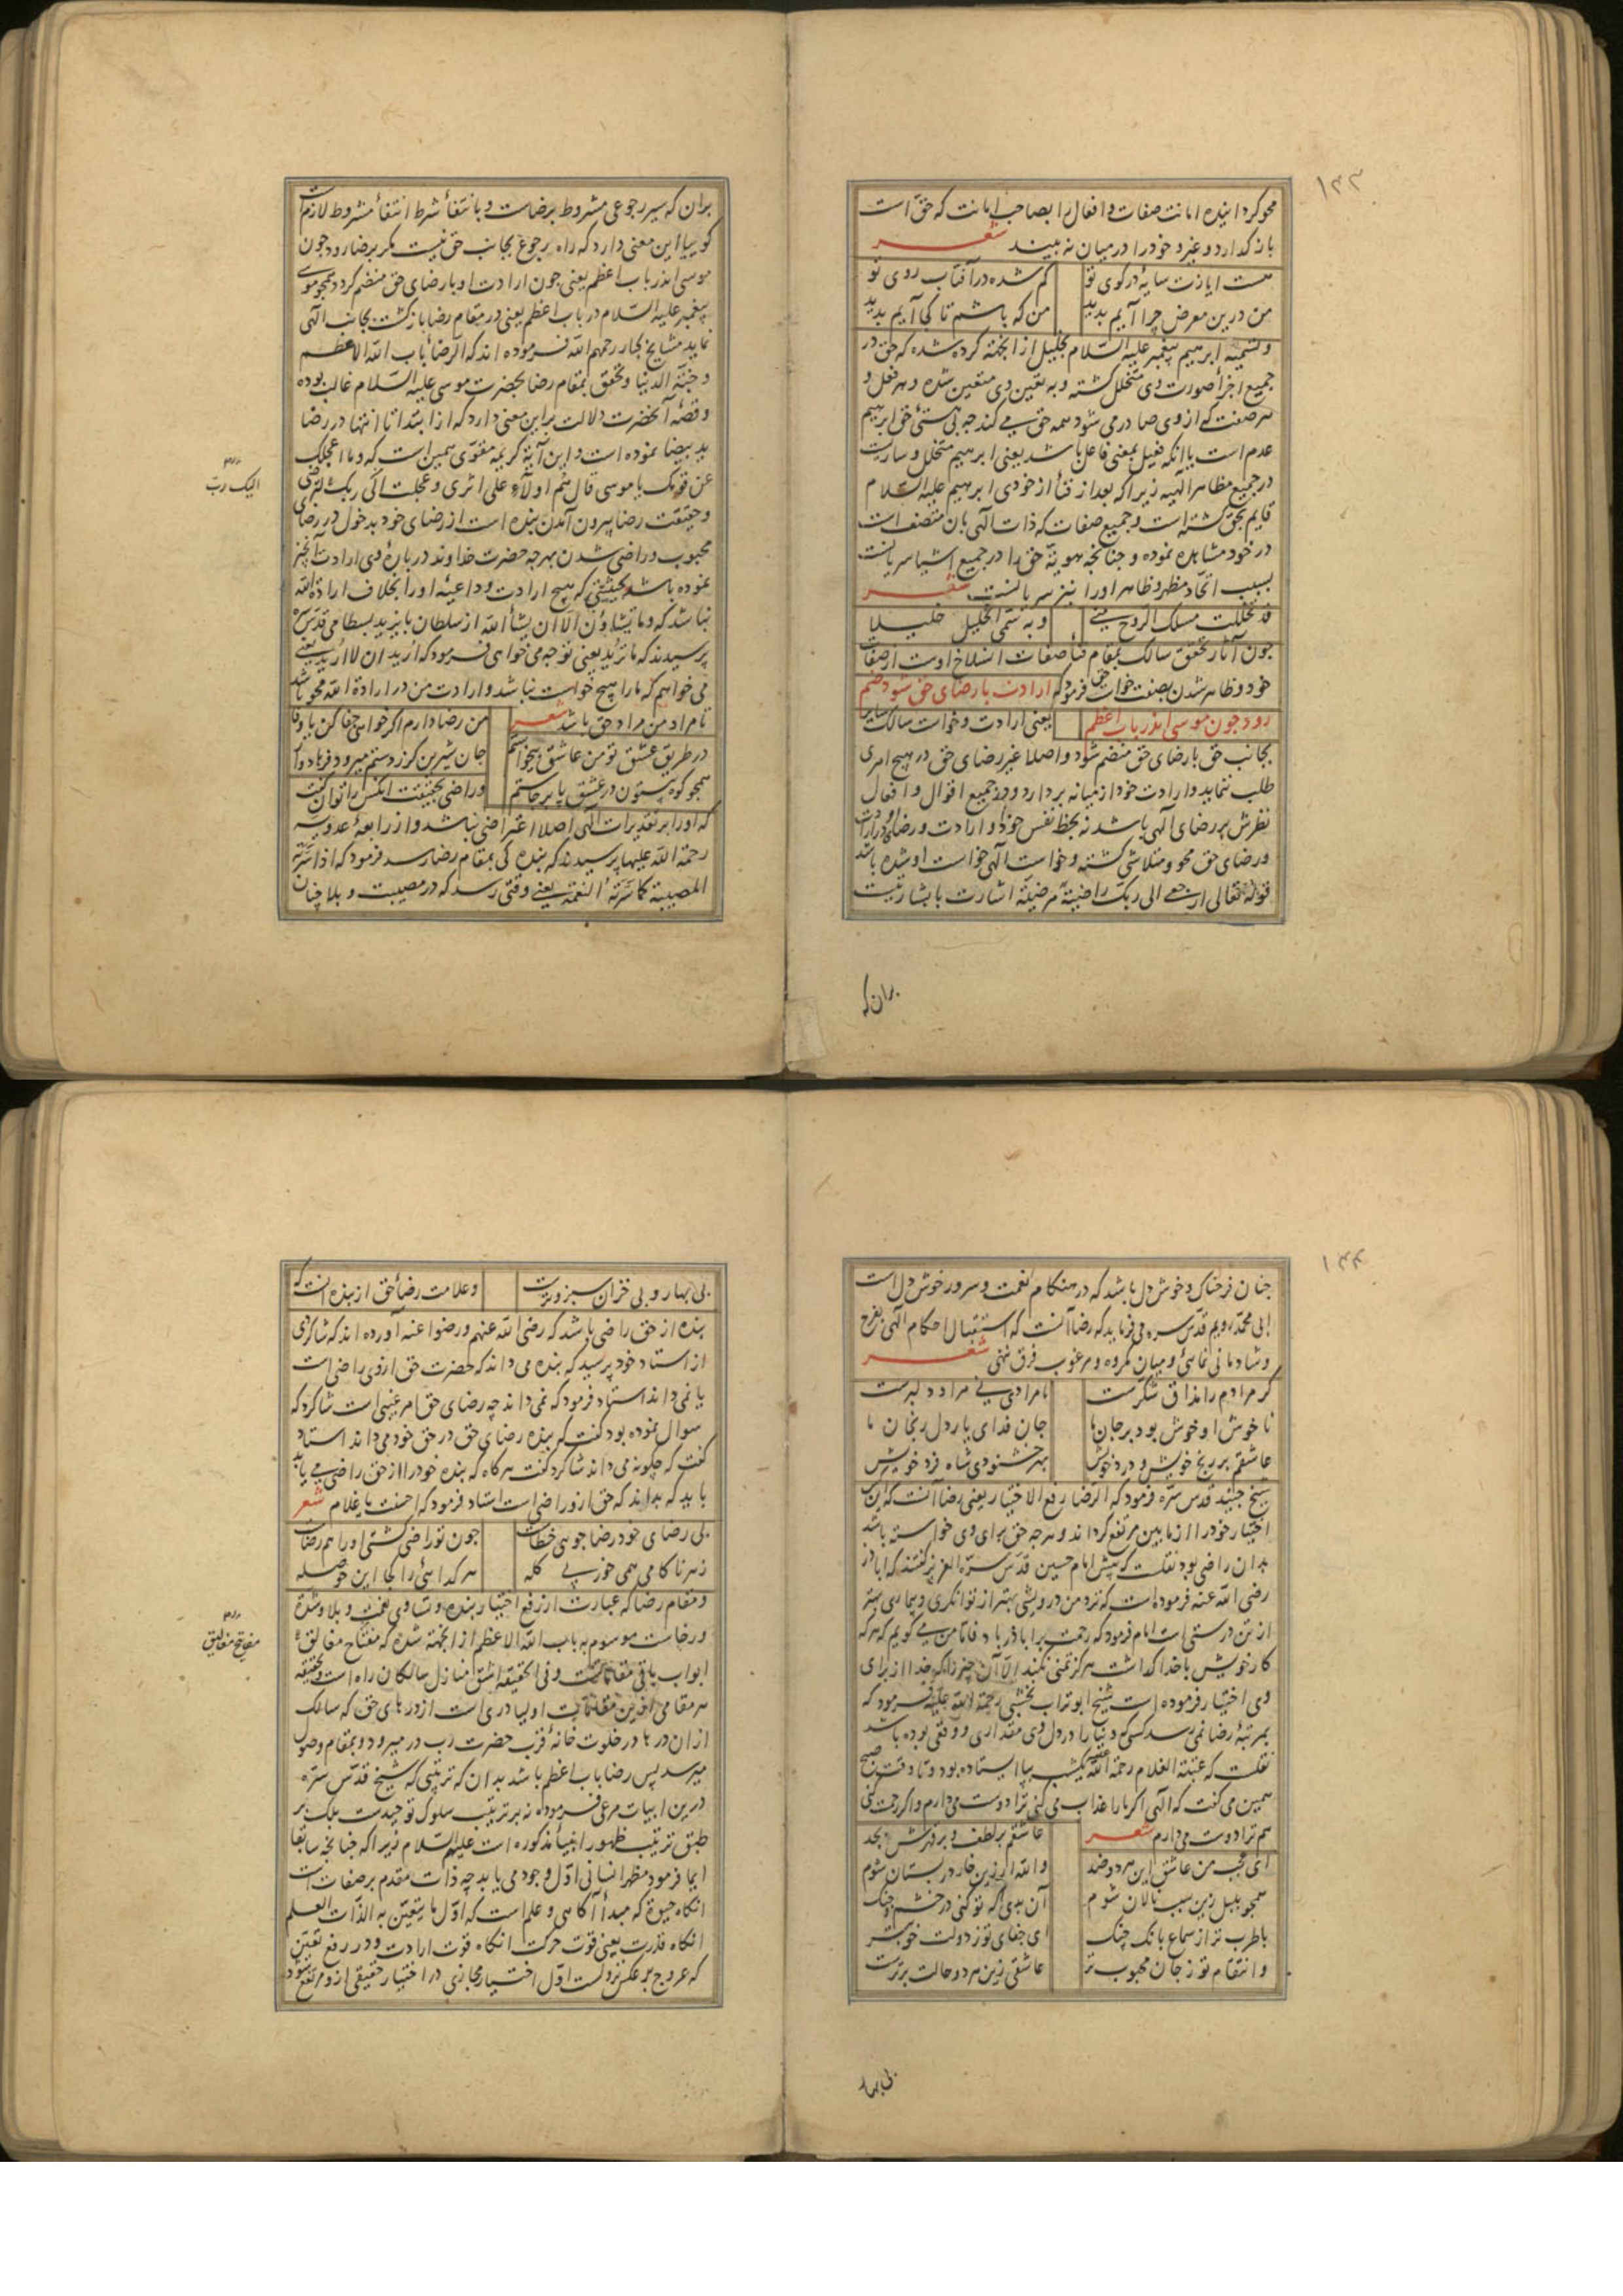 ۱۳۳
محو کرداینده امانت صفات و افعال را بصاحب امانت که حق است
باز گذارد و غیر و خود را در میان نه بیند شعر
هست ایازت سایهٔ در کوی تو کم شده در آفتاب روی تو
من درین معرض چرا آیم بدید من که باشم تا کجا آیم بدید
و تسمیهٔ ابرهیم پیغمبر علیه السلام بخلیل از انجهته کرده شده که حق در
جمیع اجزأ صورت وی متخلل کشته و به تعین وی متعین شده و هر فعل و
هر صفت که از وی صادر می شود همه حق می کند چه بی هستئ حق ابرهیم
عدم است یا انکه فعیل بمعنی فاعل باشد یعنی ابرهیم متخلل و ساریست
در جمیع مظاهر الهیه زیرا که بعد از فنأ از خودی ابرهیم علیه السلام
قایم بحق کشته است و جمیع صفات که ذات الهی بان متصف است
در خود مشاهده نموده و چنانچه هویة حق را در جمیع اشیا سریانست
بسبب اتحاد مظهر و ظاهر او را نیز سریانست شعر
قد تخللت مسلک الروح منی و به سمی الخلیل خلیلا
چون آثار تحقق سالک بمقام فنأ صفات انسلاخ اوست از صفات
خود و ظاهر شدن بصفت حق فرمود که ارادت با رضای حق شود ضم
رود چون موسی اندر باب اعظم یعنی ارادت و خواست سالک سایر
بجانب حق با رضای حق منضم شود و اصلا غیر رضای حق در هیچ امری
طلب ننماید و ارادت خود از میانه بردارد و در جمیع اقوال و افعال
نظرش بر رضای الهی باشد نه بحظ نفس خود و ارادت و رضای او در ارادت
و رضای حق محو و متلاشی کشته و خواست الهی خواست او شده باشد
قوله تعالی ارجعی الی ربک راضیة مرضیة اشارت با بشارتیست
بران که
بران که سیر رجوعی مشروط برضاست و بانتفأ شرط انتفأ مشروط لازمست
کوییا این معنی دارد که راه رجوع بجانب حق نیست مکر برضا رود چون
موسی اندر باب اعظم یعنی چون ارادت او با رضای حق منضم کردد همچو موسی
پیغمبر علیه السلام در باب اعظم یعنی در مقام رضا بازکشت بجانب الهی
نماید مشایخ کبار رحمهم الله فرموده اند که الرضأ باب الله الاعظم
و جنة الدنیا و تحقق بمقام رضا بحضرت موسی علیه السلام غالب بوده
و قصهٔ آنحضرت دلالت براین معنی دارد که از ابتدا تا انتها در رضا
ید بیضا نموده است و این آیهٔ کریمه مقوی همین است که و ما اعجلک
عن قومک یا موسی قال هم اولاء علی اثری و عجلت الی ربک لترضی
الیک رب
و حقیقت رضا بیرون آمدن بنده است از رضای خود بدخول در رضای
محبوب و راضی شدن بهرچه حضرت خداوند دربارهٔ وی ارادت آنچیز
نموده باشد بحیثیتی که هیچ ارادت و داعیهٔ او را بخلاف ارادة الله
نباشد که و ما تشاؤن الا ان یشأ الله از سلطان بایزید بسطامی قدس سره
پرسیدند که ما ترید یعنی تو چه می خواهی فرمود که ارید ان لا ارید یعنی
می خواهم که مارا هیچ خواست نباشد و ارادت من در ارادة الله محو باشد
تا مراد من مراد حق باشد شعر من رضا دارم اکر خواهی جفا کن یا وفا
در طریق عشق تو من عاشق بیخواستم جان شیرین کر ز دستم میرود فرهادوار
همچو کوه بیستون در عشق پا برجاستم و راضی بحقیقت انکس را توان کفت
که اورا بر تقدیرات الهی اصلا اعتراضی نباشد و از رابعهٔ عدویه
رحمة الله علیها پرسیدند که بنده کی بمقام رضا رسد فرمود که اذا سرته
المصیبة کما سرته النعمة یعنی وقتی رسد که در مصیبت و بلا چنان
۱۳۴
چنان فرحناک و خوش دل باشد که در هنکام نعمت و سرور خوش دل است
ابی محمد رویم قدس سره می فرماید که رضا آنست که استقبال احکام الهی بفرح
و شادمانی نمائی و میان مکروه و مرغوب فرق ننهی شعر
کر مرادم را مذاق شکرست نامرادی نی مراد دلبرست
ناخوش او خوش بود بر جان ما جان فدای یار دل رنجان ما
عاشقم بر رنج خویش و درد خویش بهر خشنودی شاه فرد خویش
شیخ جنید قدس سره فرمود که الرضا رفع الاختیار یعنی رضا آنست که این
اختیار خود را از مابین مرتفع کرداند و هرچه حق برای وی خواسته باشد
بدان راضی بود نقلست که پیش امام حسین قدس سره العزیز کفتند که اباذر
رضی الله عنه فرموده است که نزد من درویشی بهتر از توانکری و بیماری بهتر
از تن درستی است امام فرمود که رحمت بر اباذر باد فاما من می کویم که هر که
کار خویش با خدا کذاشت هرکز تمنی نکند الا آن چیز را که خدا از برای
وی اختیار فرموده است شیخ ابوتراب نخشبی رحمة الله علیه فرمود که
بمرتبهٔ رضا نمی رسد کسی که دنیا را در دل وی مقداری و وقعی بوده باشد
نقلست که عتبة الغلام رحمة الله علیه یکشب بپا ایستاده بود و تا وقت صبح
همین می کفت که الهی اکر مارا عذاب می کنی ترا دوست می دارم و اکر رحمت کنی
هم ترا دوست می دارم شعر عاشقم بر لطف و بر قهرش بجد
ای عجب من عاشق این هر دو ضد والله ار زین خار در بستان شوم
همچو بلبل زین سبب نالان شوم آن بدی که تو کنی در خشم و جنک
باطرب تر از سماع بانک چنک ای جفای تو ز دولت خوبتر
و انتقام تو ز جان محبوب تر عاشقی زین هر دو حالت برترست
بی بهار
بی بهار و بی خزان سبز و ترست و علامت رضأ حق از بنده انست که
بنده از حق راضی باشد که رضی الله عنهم و رضوا عنه آورده اند که شاکردی
از استاد خود پرسید که بنده می داند که حضرت حق ازوی راضی است
یا نمی داند استاد فرمود که نمی داند چه رضای حق امر غیبی است شاکرد که
سوال نموده بود کفت که بنده رضای حق در حق خود می داند استاد
کفت که چکونه می داند شاکرد کفت هرکاه که بنده خود را از حق راضی می یابد
باید که بداند که حق ازو راضی است استاد فرمود که احسنت یا غلام شعر
بی رضای خود رضا جوئی خطاست چون تو راضی کشتی او را هم رضاست
زهر ناکامی همی خور بی کله هر کدائی را کجا این حوصله
و مقام رضا که عبارت از رفع اختیار بنده و تساوی نعمت و بلا و شدة
و رخاست موسوم به باب الله الاعظم از انجهته شده که مفتاح مغالیق
مفاتیح مغالیق
ابواب باقی مقاماتست و فی الحقیقه اشق منازل سالکان راه است و حقیقة
هر مقامی ازین مقامات اولیا دری است از درهای حق که سالک
ازان درها در خلوت خانهٔ قرب حضرت رب در میرود و بمقام وصول
میرسد پس رضا باب اعظم باشد بدان که ترتیبی که شیخ قدس سره
درین ابیات مرعی فرموده نه بر ترتیب سلوک توحیدست بلکه بر
طبق ترتیب ظهور انبیأ مذکوره است علیهم السلام زیرا که چنانچه سابقا
ایما فرمود مظهر انسانی اول وجود می یابد چه ذات مقدم بر صفات است
انکاه حیوة که مبدأ آکاهی و علم است که اول ما یتعین به الذات العلم
انکاه قدرت یعنی قوت حرکت انکاه قوت ارادت و در رفع تعین
که عروج بر عکس نزولست اول اختیار مجازی در اختیار حقیقی ازو مرتفع شود